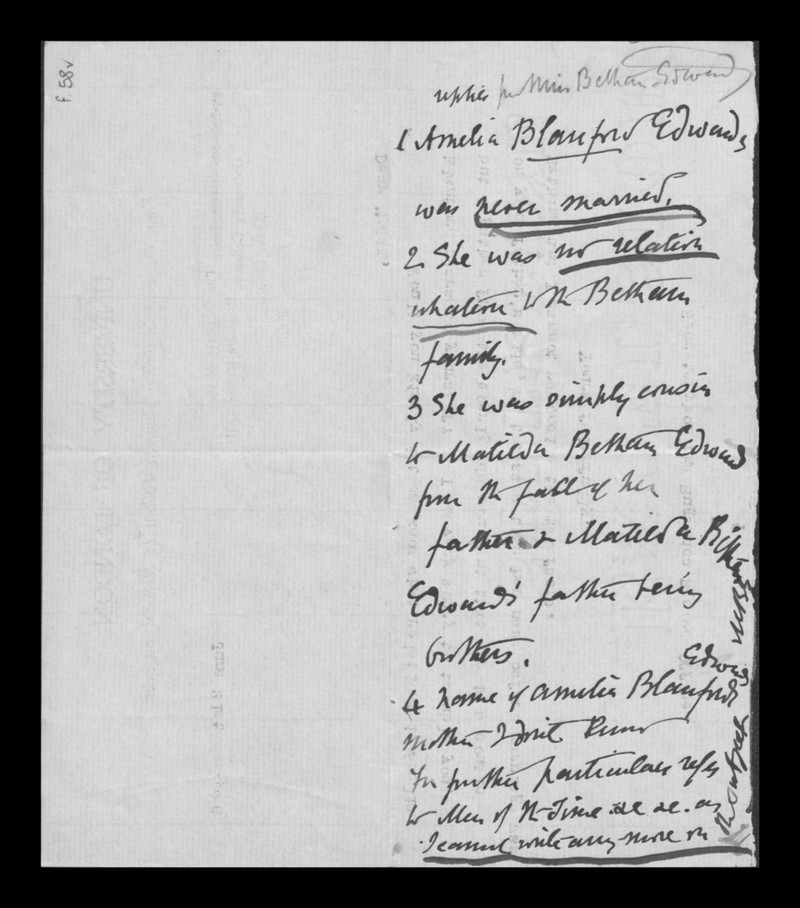 f. 58v
replies from Miss Betham Edwards
1 Amelia Blanford Edwards
was never married.
2 She was no relation
whatever to the Betham
family.
3 She was simply cousin
to Matilda Betham Edwards
from the fact of her
father & Matilda Betham
Edwards' father being
brothers.
4 Name of Amelia Blanford
Edwards
mother I don't know
For further particulars refer
to Men of the Time &c &c. as
I cannot write any more on
the subject